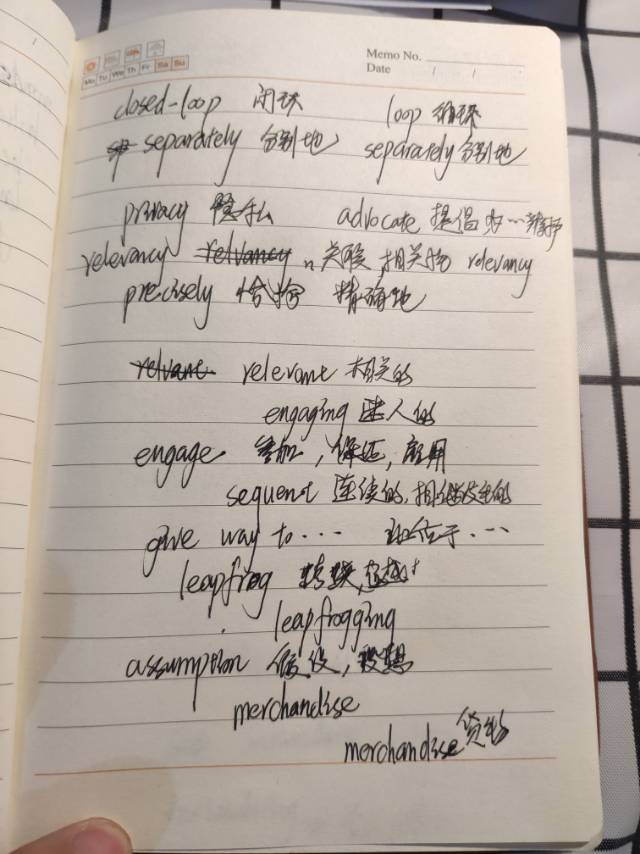 Memo No.
Mo Tu We Th Fr Sa Su
Date / /
closed-loop 闭环 loop 循环
separately 分别地 separately 分别地
privacy 隐私 advocate 提倡 为…辩护
relevancy relvancy n 关联 相关物 relevancy
precisely 恰好 精确地
relvant relevant 相关的
engaging 迷人的
engage 参加,保证,雇用
sequent 连续的,相继发生的
give way to... 让位于...
leapfrog
leapfrogging
assumption 假设,设想
merchandise
merchandise 货物